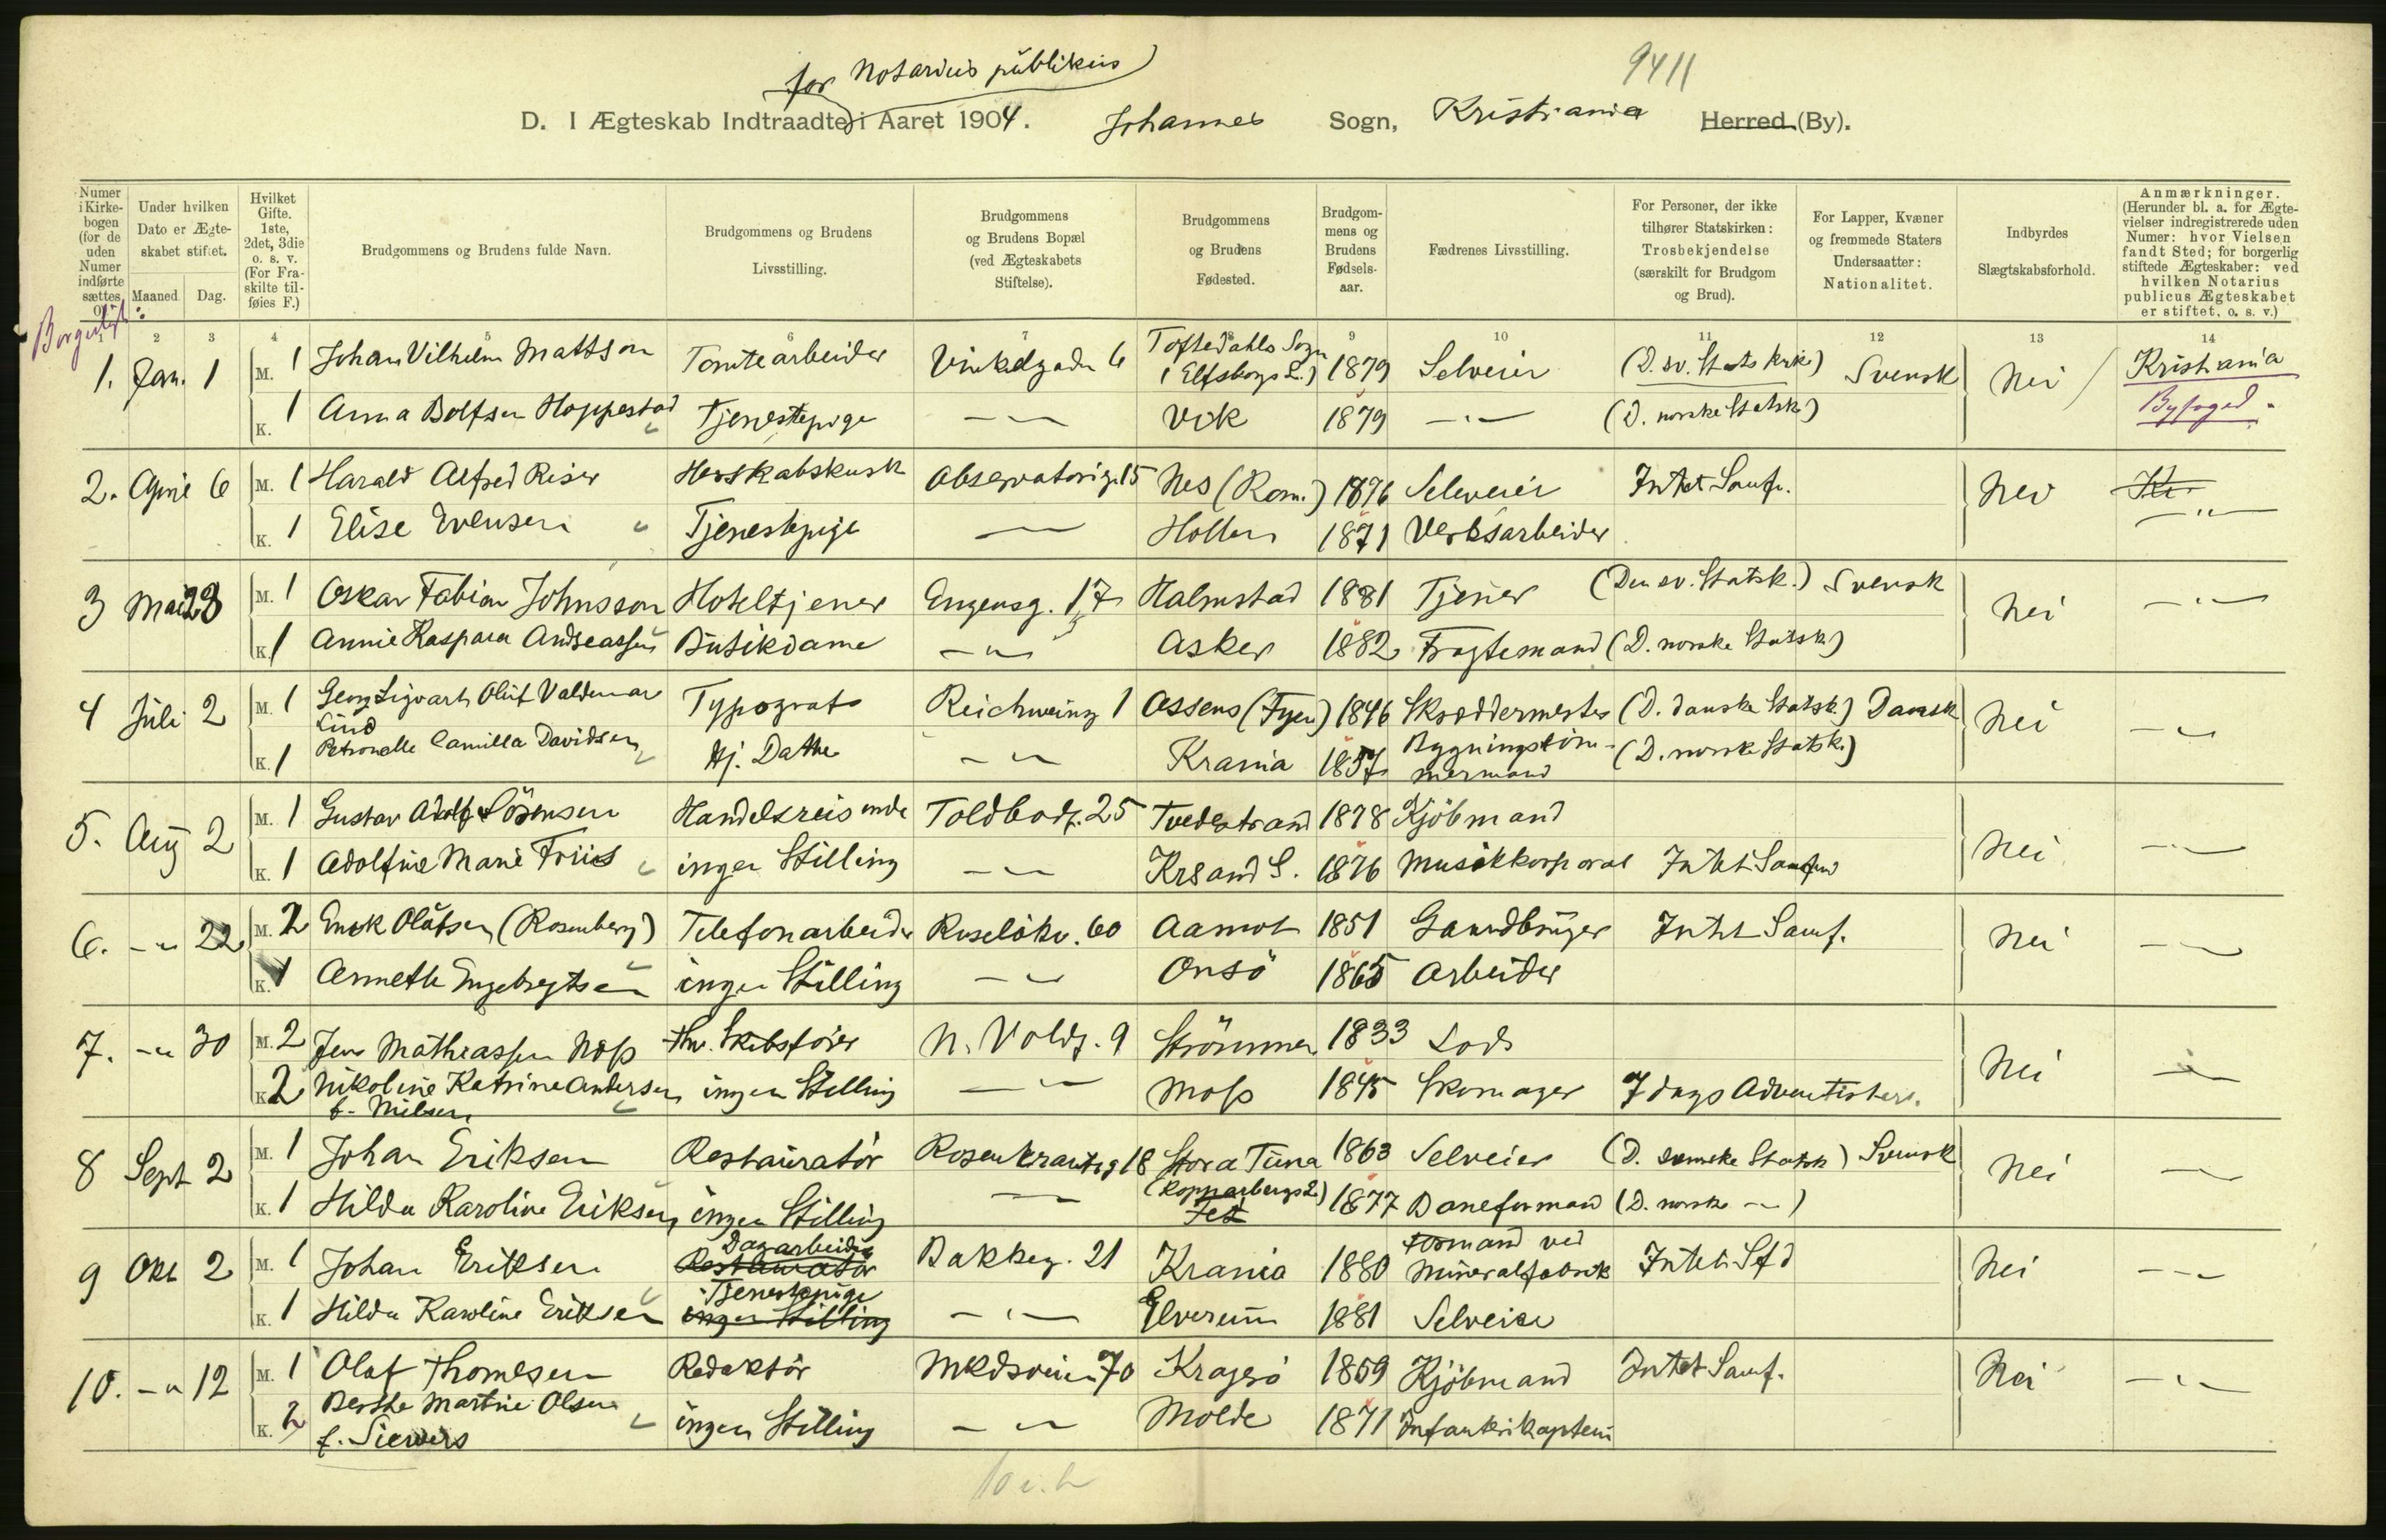 for Notarius publikus
9411
D. I Ægteskab Indtraadte i Aaret 1904. Johannes Sogn, Kristiania Herred (By).
Numer i Kirkebogen (for de uden Numer indførte sættes 0).
Under hvilken Dato er Ægteskabet stiftet.
Maaned. Dag.
Hvilket Gifte. 1ste, 2det, 3die o. s. v. (For Fraskilte tilføies F.)
Brudgommens og Brudens fulde Navn.
Brudgommens og Brudens Livsstilling.
Brudgommens og Brudens Bopæl (ved Ægteskabets Stiftelse).
Brudgommens og Brudens Fødested.
Brudgommens og Brudens Fødselsaar.
Fædrenes Livsstilling.
For Personer, der ikke tilhører Statskirken: Trosbekjendelse (særskilt for Brudgom og Brud).
For Lapper, Kvæner og fremmede Staters Undersaatter: Nationalitet.
Indbyrdes Slægtskabsforhold.
Anmærkninger. (Herunder bl. a. for Ægtevielser indregistrerede uden Numer: hvor Vielsen fandt Sted; for borgerlig stiftede Ægteskaber: ved hvilken Notarius publicus Ægteskabet er stiftet, o. s. v.)
Borgerligt:
1 2 3 4 5 6 7 8 9 10 11 12 13 14
1. Jan. 1 M. 1 Johan Vilhelm Mattson Tomtearbeider Vinkelgaden 6 Toftedahls Sogn (Elfsborgs L.) 1879 Selveier (D. sv. Statskirk.) Svensk Nei Kristiania Byfoged.
K. 1 Anna Bolfsen Hoppestad Tjenestepige — " — Vik 1879 — " — (D. norske Statsk.)
2. April 6 M. 1 Harald Alfred Riser Herskabskusk Observatorieg. 15 Nes (Rom.) 1876 Selveier Intet Samf. Nei — " —
K. 1 Elise Evensen Tjenestepige — Hollen 1871 Verksarbeider
3 Mai 28 M. 1 Oskar Fabian Johnsson Hoteltjener Eugensg. 17 Halmstad 1881 Tjener (Den sv. Statsk.) Svensk Nei — " —
K. 1 Annie Kaspara Andreassen Butikdame — " — Asker 1882 Fragtemand (D. norske Statsk.)
4 Juli 2 M. 1 Georg Sigvart Oluf Valdemar Lind Typograf Reichweinsg 1 Assens (Fyen) 1846 Skræddermester (D. danske Statsk.) Dansk Nei — " —
K. 1 Petronelle Camilla Davidsen Hj. Datter — " — Krania 1857 Bygningstømmermand (D. norske Statsk.)
5. Aug 2 M. 1 Gustav Adolf Sörensen Handelsreisende Toldbodg. 25 Tvedestrand 1878 Kjöbmand Nei — " —
K. 1 Adolfine Marie Friis ingen Stilling — " — Krsand S. 1876 Musikkorporal Intet Samfund
6. — " 22 M. 2 Enok Olausen (Rosenberg) Telefonarbeider Ruselökv. 60 Aamot 1851 Gaardbruger Intet Samf. Nei — " —
K. 1 Annette Engebregtsen ingen Stilling — " — Onsö 1865 Arbeider
7. — " 30 M. 2 Jens Mathiassen Næss fhv. Skibsförer N. Voldg. 9 Strömmen 1833 Lods Nei — " —
K. 2 Nikoline Katrine Andersen f. Nilsen ingen Stilling — " — Moss 1845 Skomager 7 dags Adventister.
8 Sept 2 M. 1 Johan Eriksen Restauratör Rosenkrantzg 18 Stora Tuna (Kopparbergs L.) 1863 Selveier (D. svenske Statsk) Svensk Nei — " —
K. 1 Hilda Karoline Eriksen ingen Stilling — " — Fet 1877 Baneformand (D. norske — " —)
9 Okt 2 M. 1 Johan Eriksen Restauratör Dagarbeider Bakkeg. 21 Krania 1880 Formand ved Mineralfabrik Intet Sfd Nei — " —
K. 1 Hilda Karoline Eriksen ingen Stilling Tjenestepige — " — Elverum 1881 Selveier
10. — " 12 M. 1 Olaf Thomesen Redaktör Mkdsveien 70 Kragerö 1859 Kjöbmand Intet Samf. Nei — " —
K. 2 Berthe Martine Olsen f. Sievers ingen Stilling — " — Molde 1871 Infanterikaptein